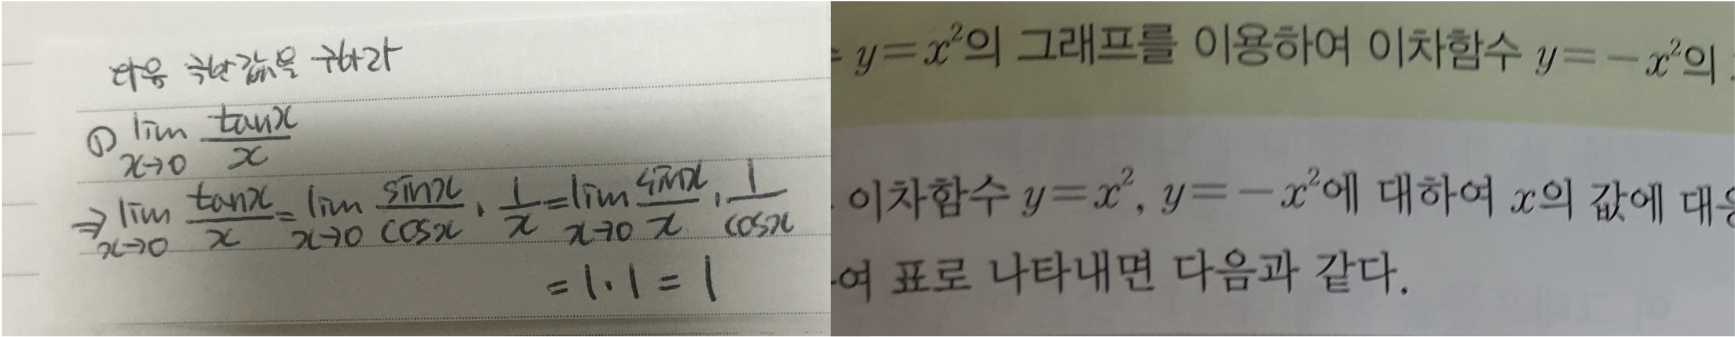 다음 극한값을 구하라
① lim x→0 tanx/x
⇒ lim x→0 tanx/x = lim x→0 sinx/cosx · 1/x = lim x→0 sinx/x · 1/cosx
= 1·1 = 1
y=x²의 그래프를 이용하여 이차함수 y=-x²의
이차함수 y=x², y=-x²에 대하여 x의 값에 대응
여 표로 나타내면 다음과 같다.